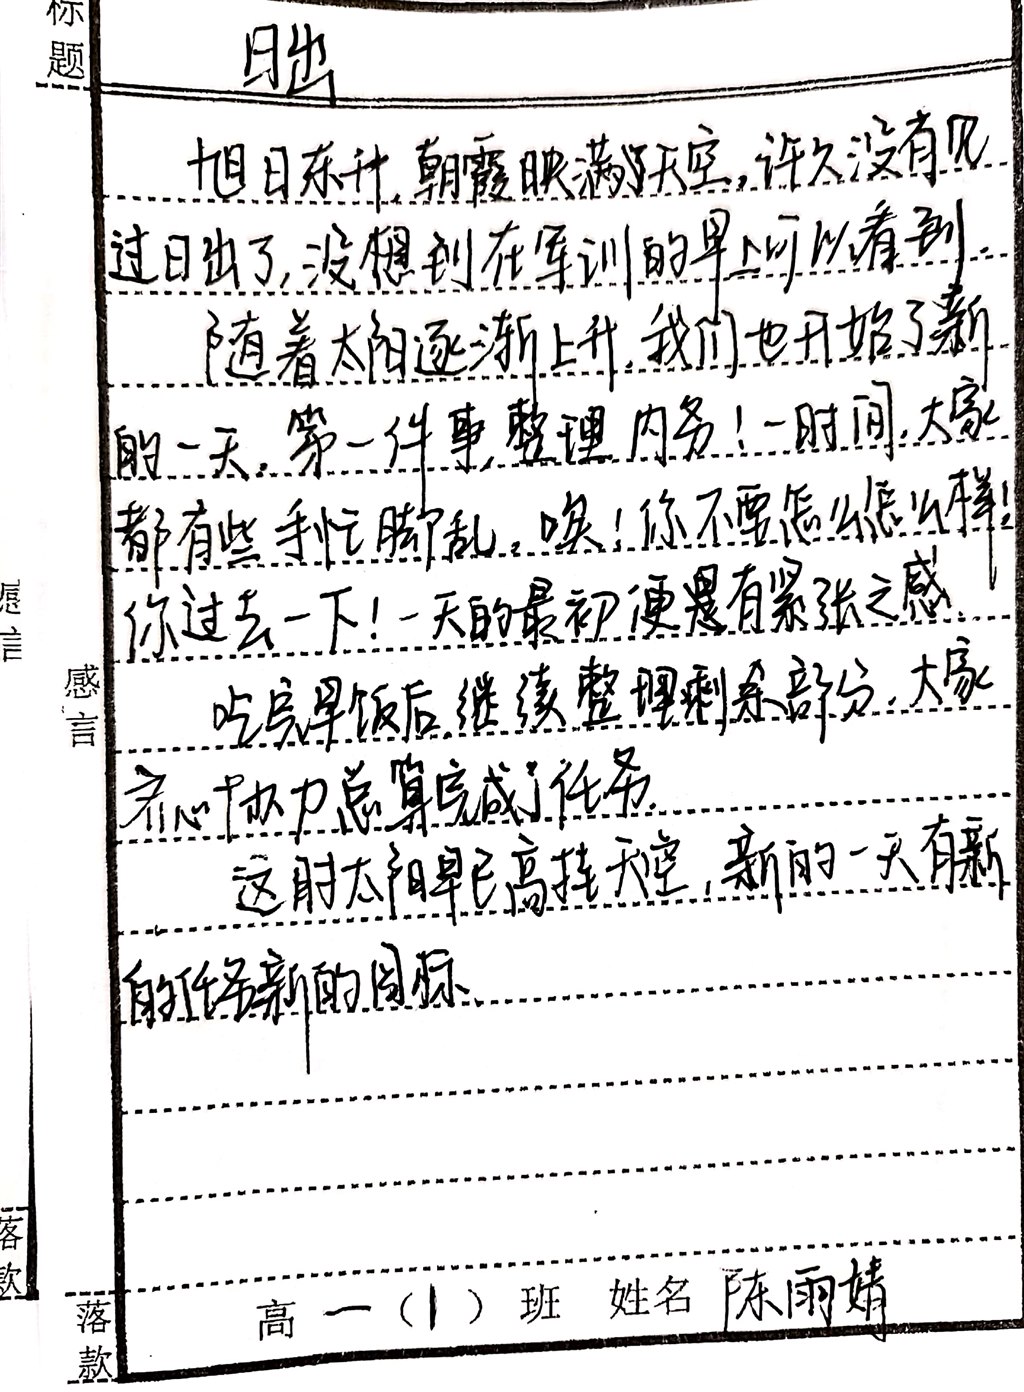 标题
日出
旭日东升,朝霞映满了天空,许久没有见
过日出了,没想到在军训的早上可以看到.
随着太阳逐渐上升,我们也开始了新
的一天。第一件事,整理内务!一时间,大家
都有些手忙脚乱。唉!你不要怎么怎么样!
你过去一下!一天的最初便是有紧张之感.
感言
吃完早饭后,继续整理剩余部分,大家
齐心协力总算完成了任务.
这时太阳早已高挂天空,新的一天有新
的任务新的目标.
落款
高一(1)班 姓名 陈雨婧
感言
落款